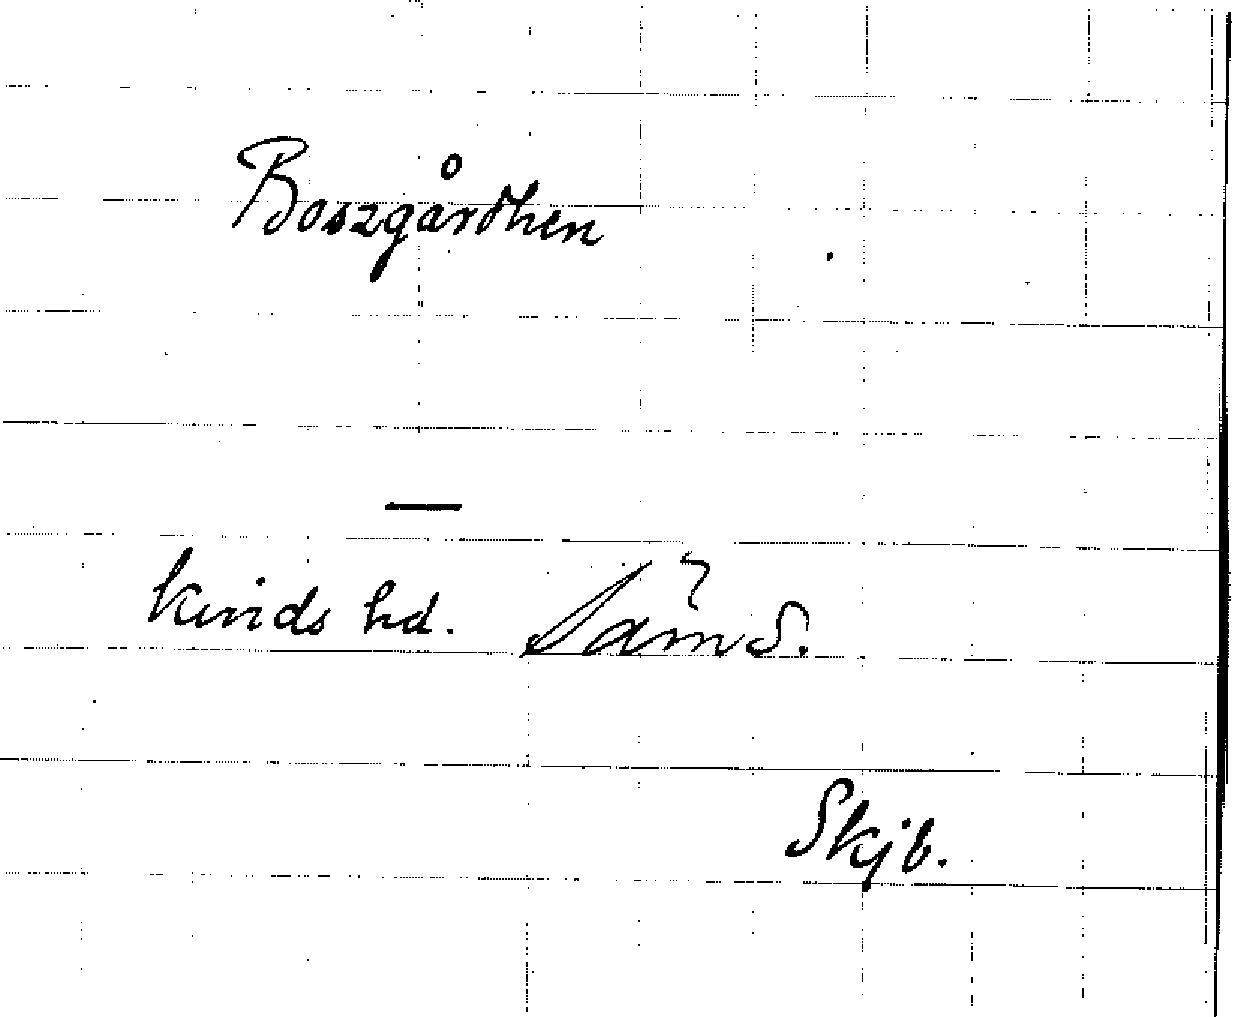 Boszgårdhen
—
kinds hd. Säm s.
Skjb.